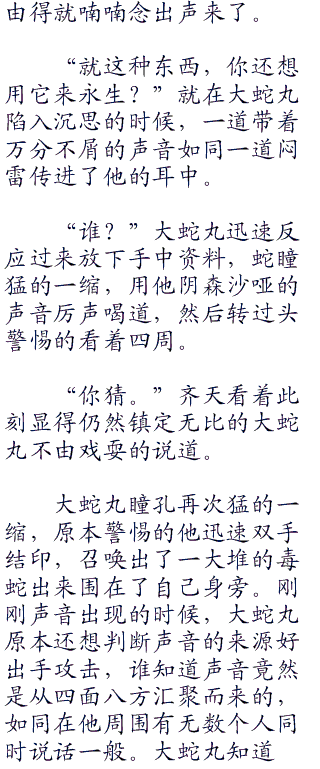 由得就喃喃念出声来了。
“就这种东西，你还想
用它来永生？”就在大蛇丸
陷入沉思的时候，一道带着
万分不屑的声音如同一道闷
雷传进了他的耳中。
“谁？”大蛇丸迅速反
应过来放下手中资料，蛇瞳
猛的一缩，用他阴森沙哑的
声音厉声喝道，然后转过头
警惕的看着四周。
“你猜。”齐天看着此
刻显得仍然镇定无比的大蛇
丸不由戏耍的说道。
大蛇丸瞳孔再次猛的一
缩，原本警惕的他迅速双手
结印，召唤出了一大堆的毒
蛇出来围在了自己身旁。刚
刚声音出现的时候，大蛇丸
原本还想判断声音的来源好
出手攻击，谁知道声音竟然
是从四面八方汇聚而来的，
如同在他周围有无数个人同
时说话一般。大蛇丸知道